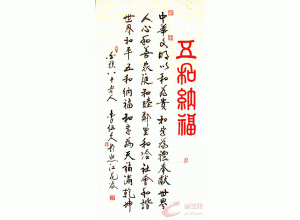 五和納福
中華文明以和為貴和為禮奉献世界
人心和善家庭和睦鄰里和洽社會和諧
世界和平五和納福和為天福滿乾坤
八十老人